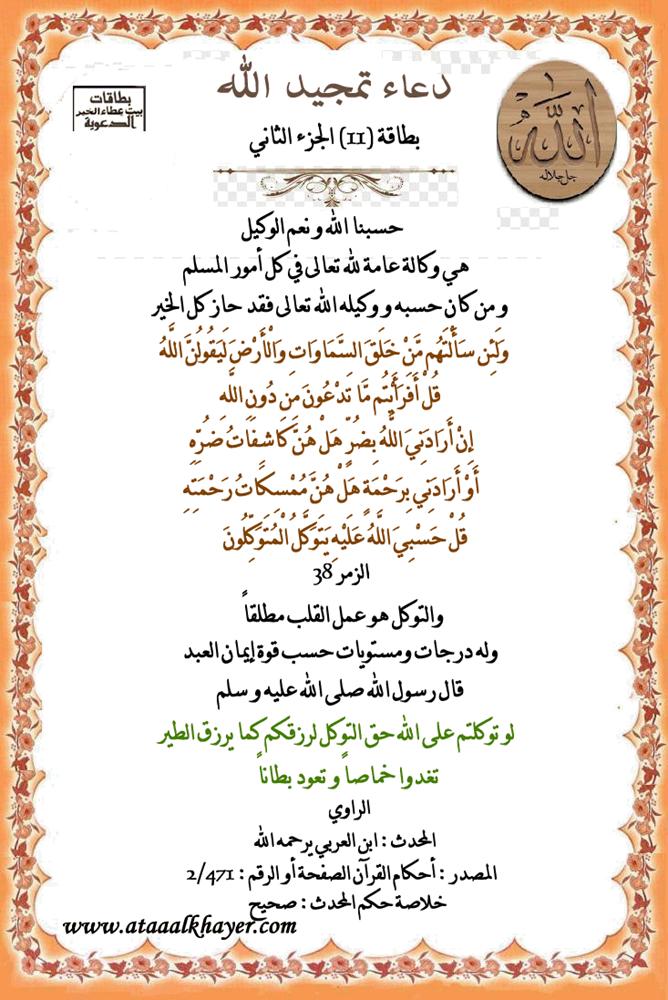 دعاء تمجيد الله
بطاقات
بيت عطاء الخير
الدعوية
الله
جل جلاله
بطاقة (11) الجزء الثاني
حسبنا الله و نعم الوكيل
هي وكالة عامة لله تعالى في كل أمور المسلم
و من كان حسبه و وكيله الله تعالى فقد حاز كل الخير
وَلَئِن سَأَلْتَهُم مَّنْ خَلَقَ السَّمَاوَاتِ وَالْأَرْضَ لَيَقُولُنَّ اللَّهُ
قُلْ أَفَرَأَيْتُم مَّا تَدْعُونَ مِن دُونِ اللَّهِ
إِنْ أَرَادَنِيَ اللَّهُ بِضُرٍّ هَلْ هُنَّ كَاشِفَاتُ ضُرِّهِ
أَوْ أَرَادَنِي بِرَحْمَةٍ هَلْ هُنَّ مُمْسِكَاتُ رَحْمَتِهِ
قُلْ حَسْبِيَ اللَّهُ عَلَيْهِ يَتَوَكَّلُ الْمُتَوَكِّلُونَ
الزمر 38
والتوكل هو عمل القلب مطلقاً
وله درجات ومستويات حسب قوة إيمان العبد
قال رسول الله صلى الله عليه و سلم
لو توكلتم على الله حق التوكل لرزقكم كما يرزق الطير
تغدوا خماصاً و تعود بطاناً
الراوي
المحدث : ابن العربي يرحمه الله
المصدر : أحكام القرآن الصفحة أو الرقم : 2/471
خلاصة حكم المحدث : صحيح
www.ataaalkhayer.com